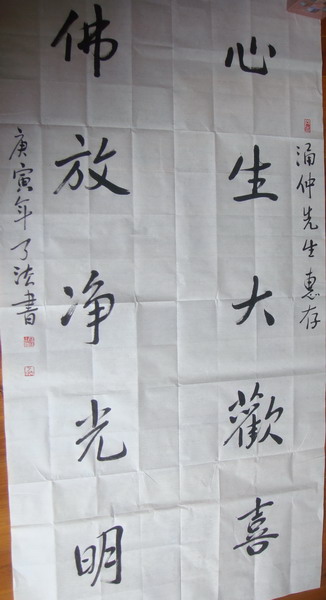 涌仲先生惠存
心生大歡喜
佛放净光明
庚寅年了法書